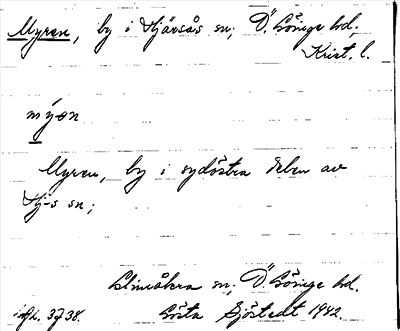 Myren, by i Hjärsås sn; Ö. Göinge hd,
Krist. l.
mýən
Myren, by i sydöstra delen av
Hj-s sn;
Glimåkra sn, Ö. Göinge hd.
Gösta Sjöstedt 1942.